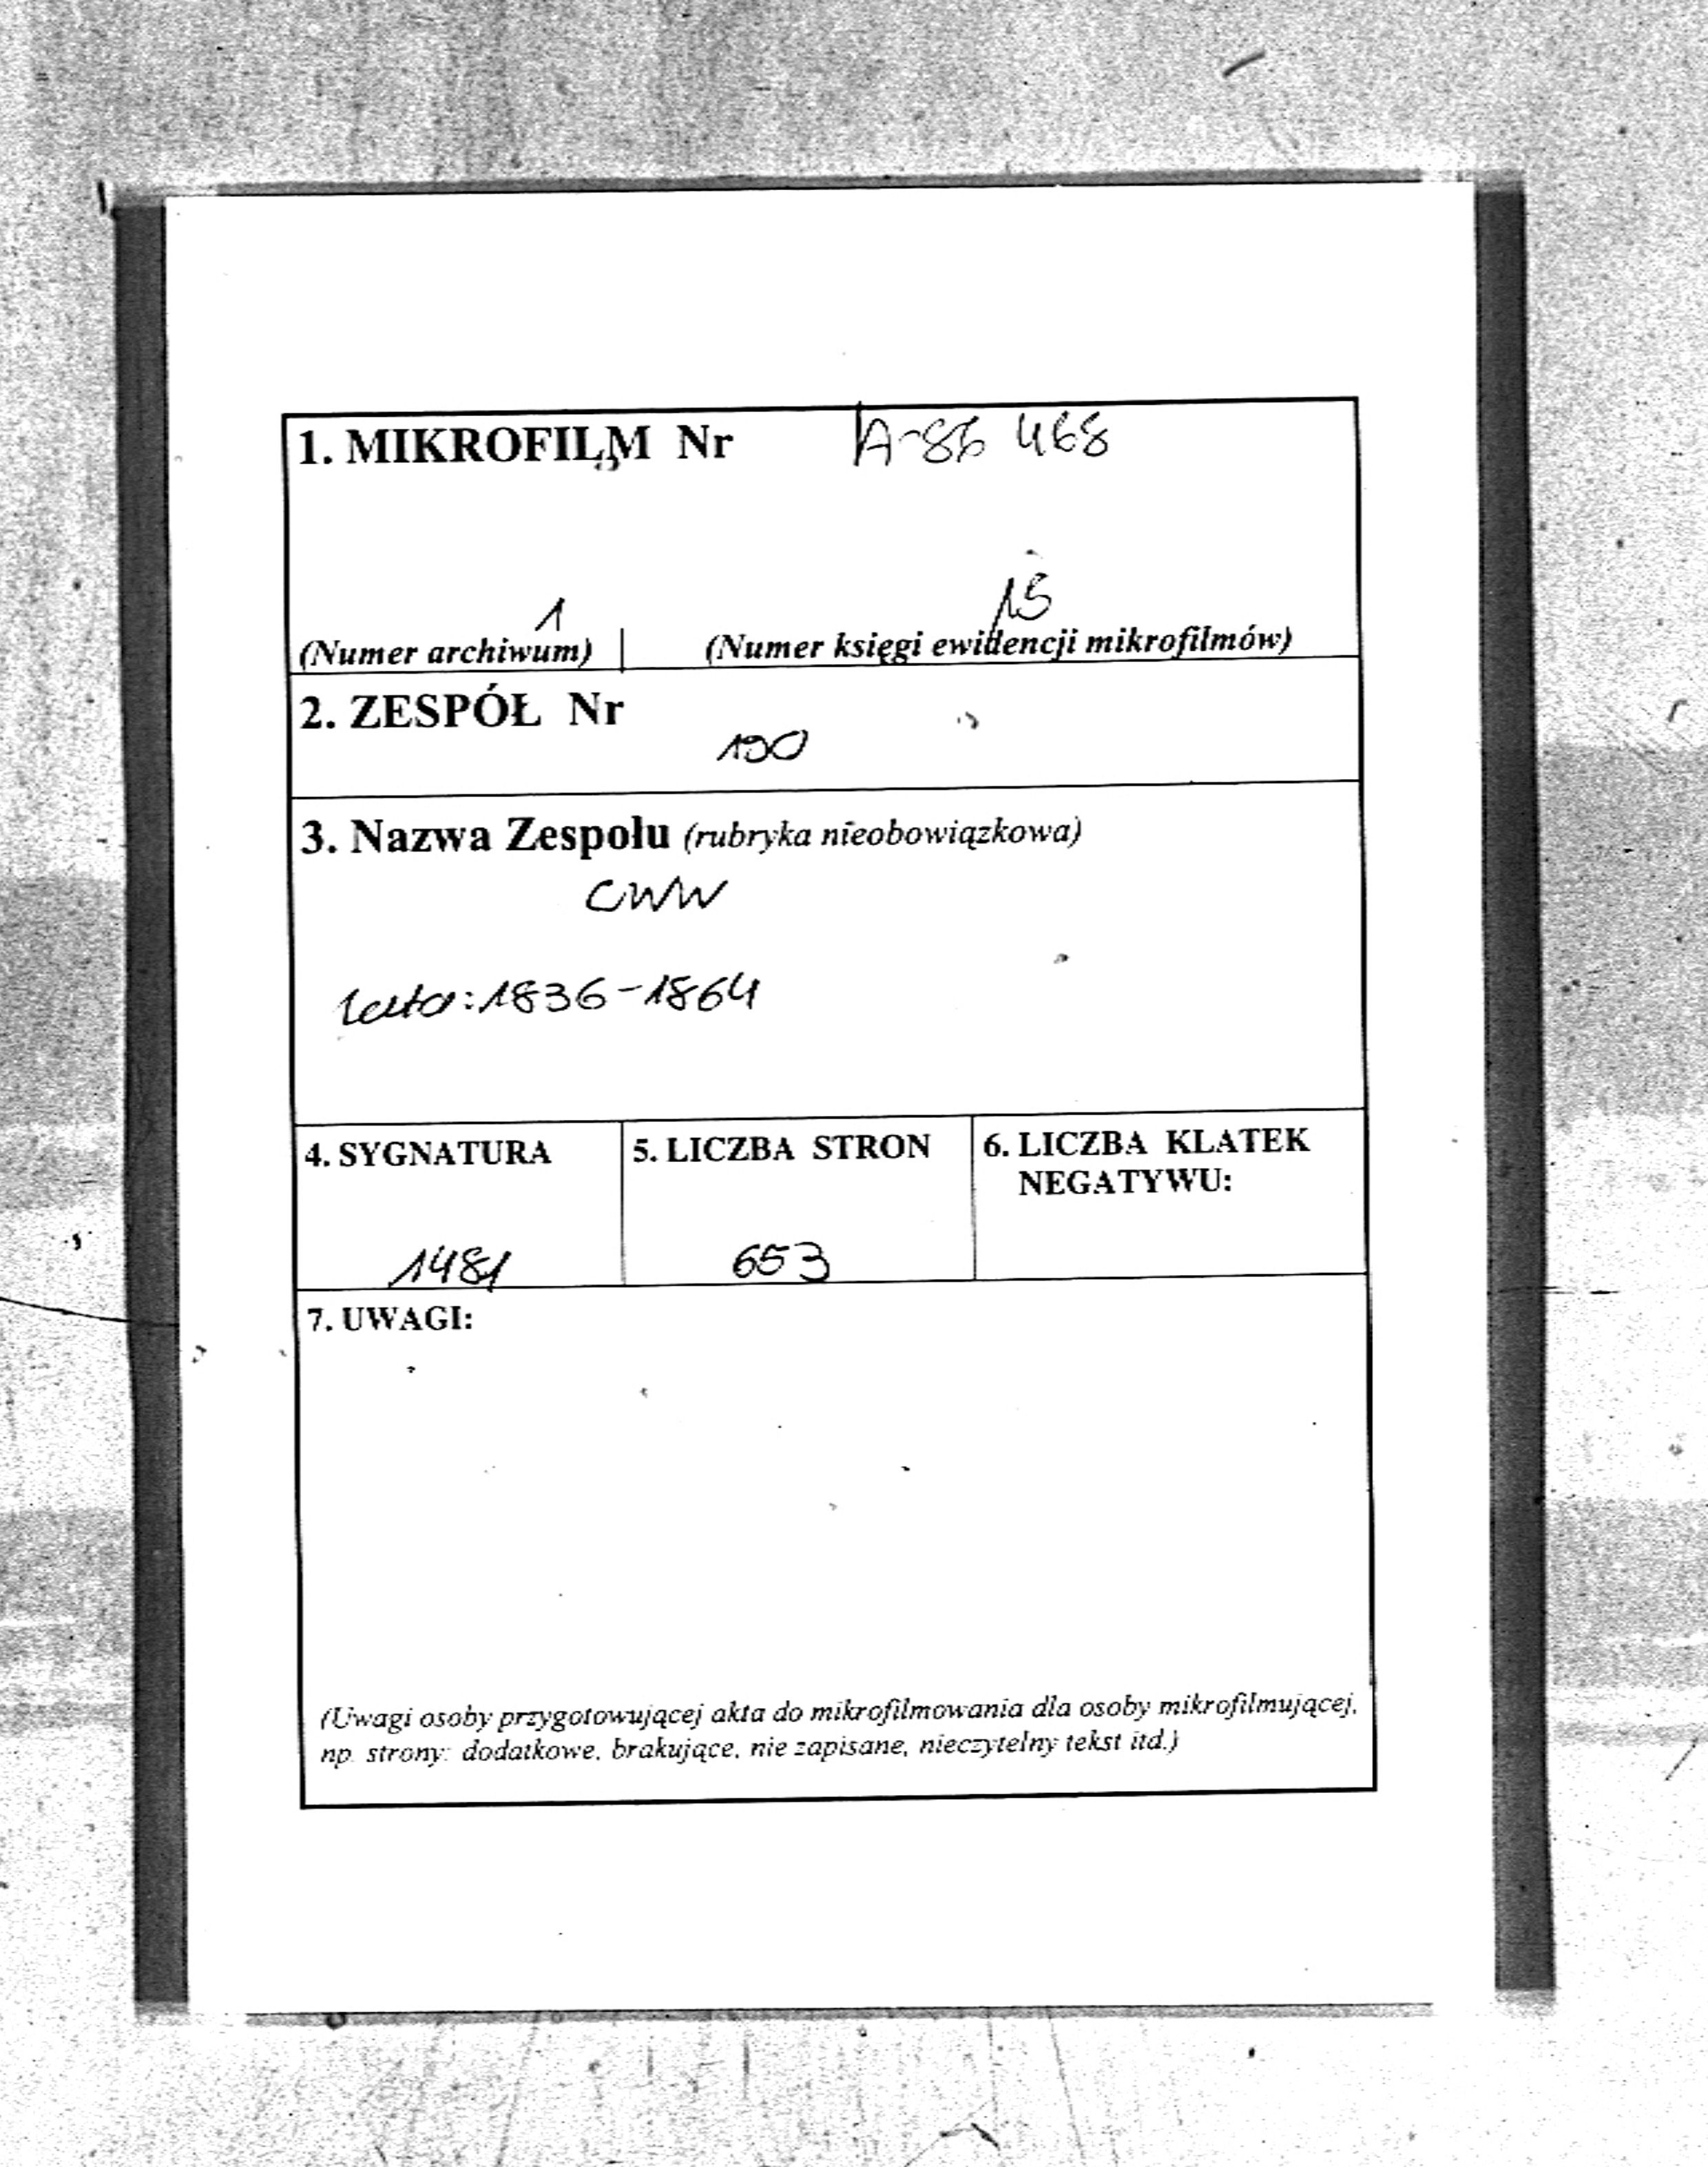 1. MIKROFILM Nr A-86 468
1 15
(Numer archiwum) (Numer księgi ewidencji mikrofilmów)
2. ZESPÓŁ Nr
190
3. Nazwa Zespołu (rubryka nieobowiązkowa)
CWW
lata: 1836-1864
4. SYGNATURA 5. LICZBA STRON 6. LICZBA KLATEK
NEGATYWU:
1481 653
7. UWAGI:
(Uwagi osoby przygotowującej akta do mikrofilmowania dla osoby mikrofilmującej,
np. strony: dodatkowe, brakujące, nie zapisane, nieczytelny tekst itd.)